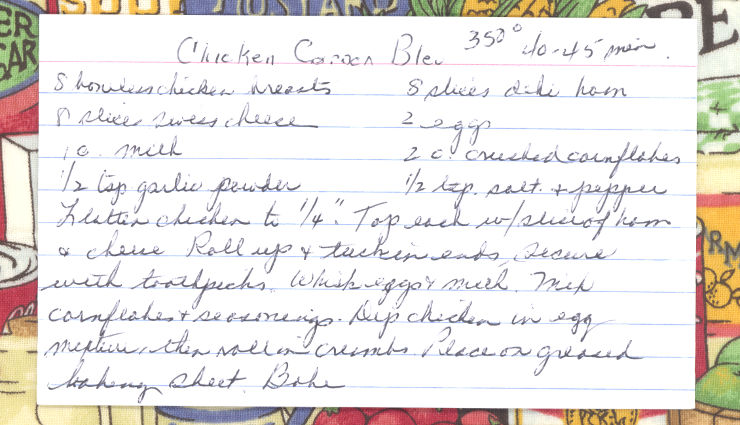 Chicken Cordon Bleu 350° 40-45 min.
8 boneless chicken breasts 8 slices deli ham
8 slices swiss cheese 2 eggs
1 c. milk 2 c. crushed cornflakes
1/2 tsp garlic powder 1/2 tsp. salt. + pepper
Flatten chicken to 1/4". Top each w/ slice of ham
& cheese Roll up & tuck in ends, secure
with toothpicks. Whisk eggs & milk. Mix
cornflakes + seasonings. Dip chicken in egg
mixture, then roll in crumbs. Place on greased
baking sheet. Bake